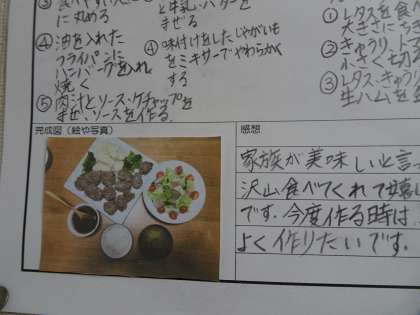 に丸める
④油を入れた
フライパンに
ハンバーグを入れ
焼く
⑤肉汁とソース、ケチャップを
まぜ、ソースを作る。
と牛乳・バターを
まぜる
④味付けをしたじゃがいも
をミキサーでやわらかく
する
①レタスを食べ
大きさにち
②きゅうり、ト
小さく切る
③レタス、きゅう
生ハムを
完成図(絵や写真)
感想
家族が美味しいと言
沢山食べてくれて嬉し
です。今度作る時は
よく作りたいです。